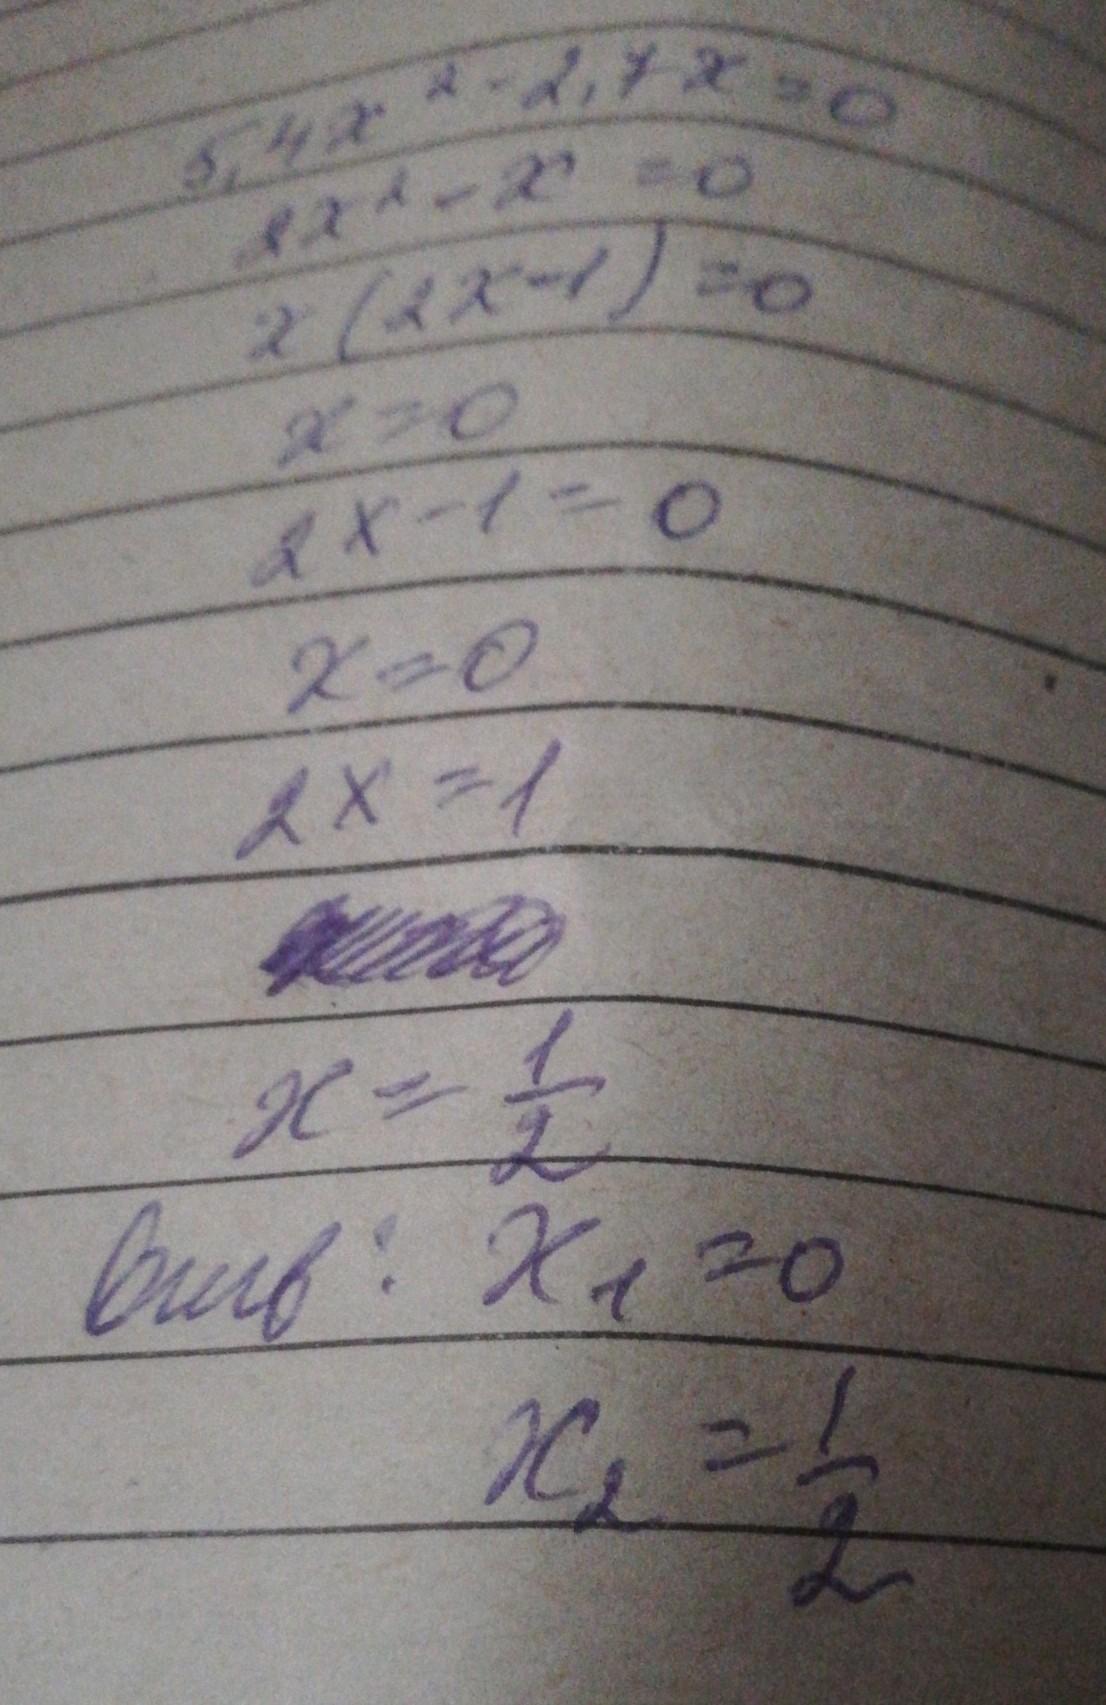 5,4x² - 2,7x = 0
2x² - x = 0
x(2x-1) = 0
x = 0
2x - 1 = 0
x = 0
2x = 1
x = 1/2
x₁ = 0
x₂ = 1/2